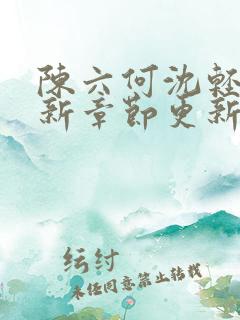 陳六何沈輕
新章節更新
纭纣
未经同意禁止转载